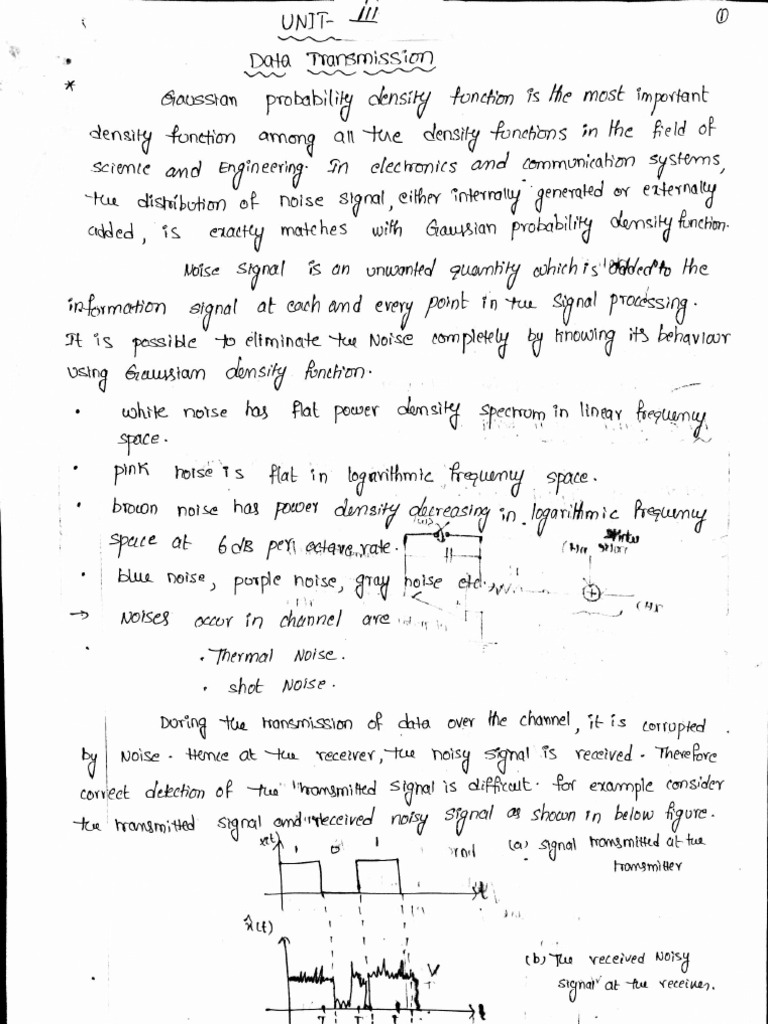 UNIT- III
①
Data Transmission
* Gaussian probability density function is the most important
density function among all the density functions in the field of
science and Engineering. In electronics and communication systems,
the distribution of noise signal, either internally generated or externally
added, is exactly matches with Gaussian probability density function.
Noise signal is an unwanted quantity which is added to the
information signal at each and every point in the signal processing.
It is possible to eliminate the Noise completely by knowing its behaviour
using Gaussian density function.
• white noise has flat power density spectrum in linear frequency
space.
• pink noise is flat in logarithmic frequency space.
• brown noise has power density decreasing in logarithmic frequency
space at 6 dB per octave rate.
• blue noise, purple noise, gray noise etc.
→ Noises occur in channel are
• Thermal Noise.
• shot Noise.
During the transmission of data over the channel, it is corrupted
by Noise. Hence at the receiver, the noisy signal is received. Therefore
correct detection of the transmitted signal is difficult. for example consider
the transmitted signal and received noisy signal as shown in below figure.
x(t)
1 0 1
(a) signal transmitted at the
transmitter
t
x̂(t)
(b) The received Noisy
signal at the receiver.
t